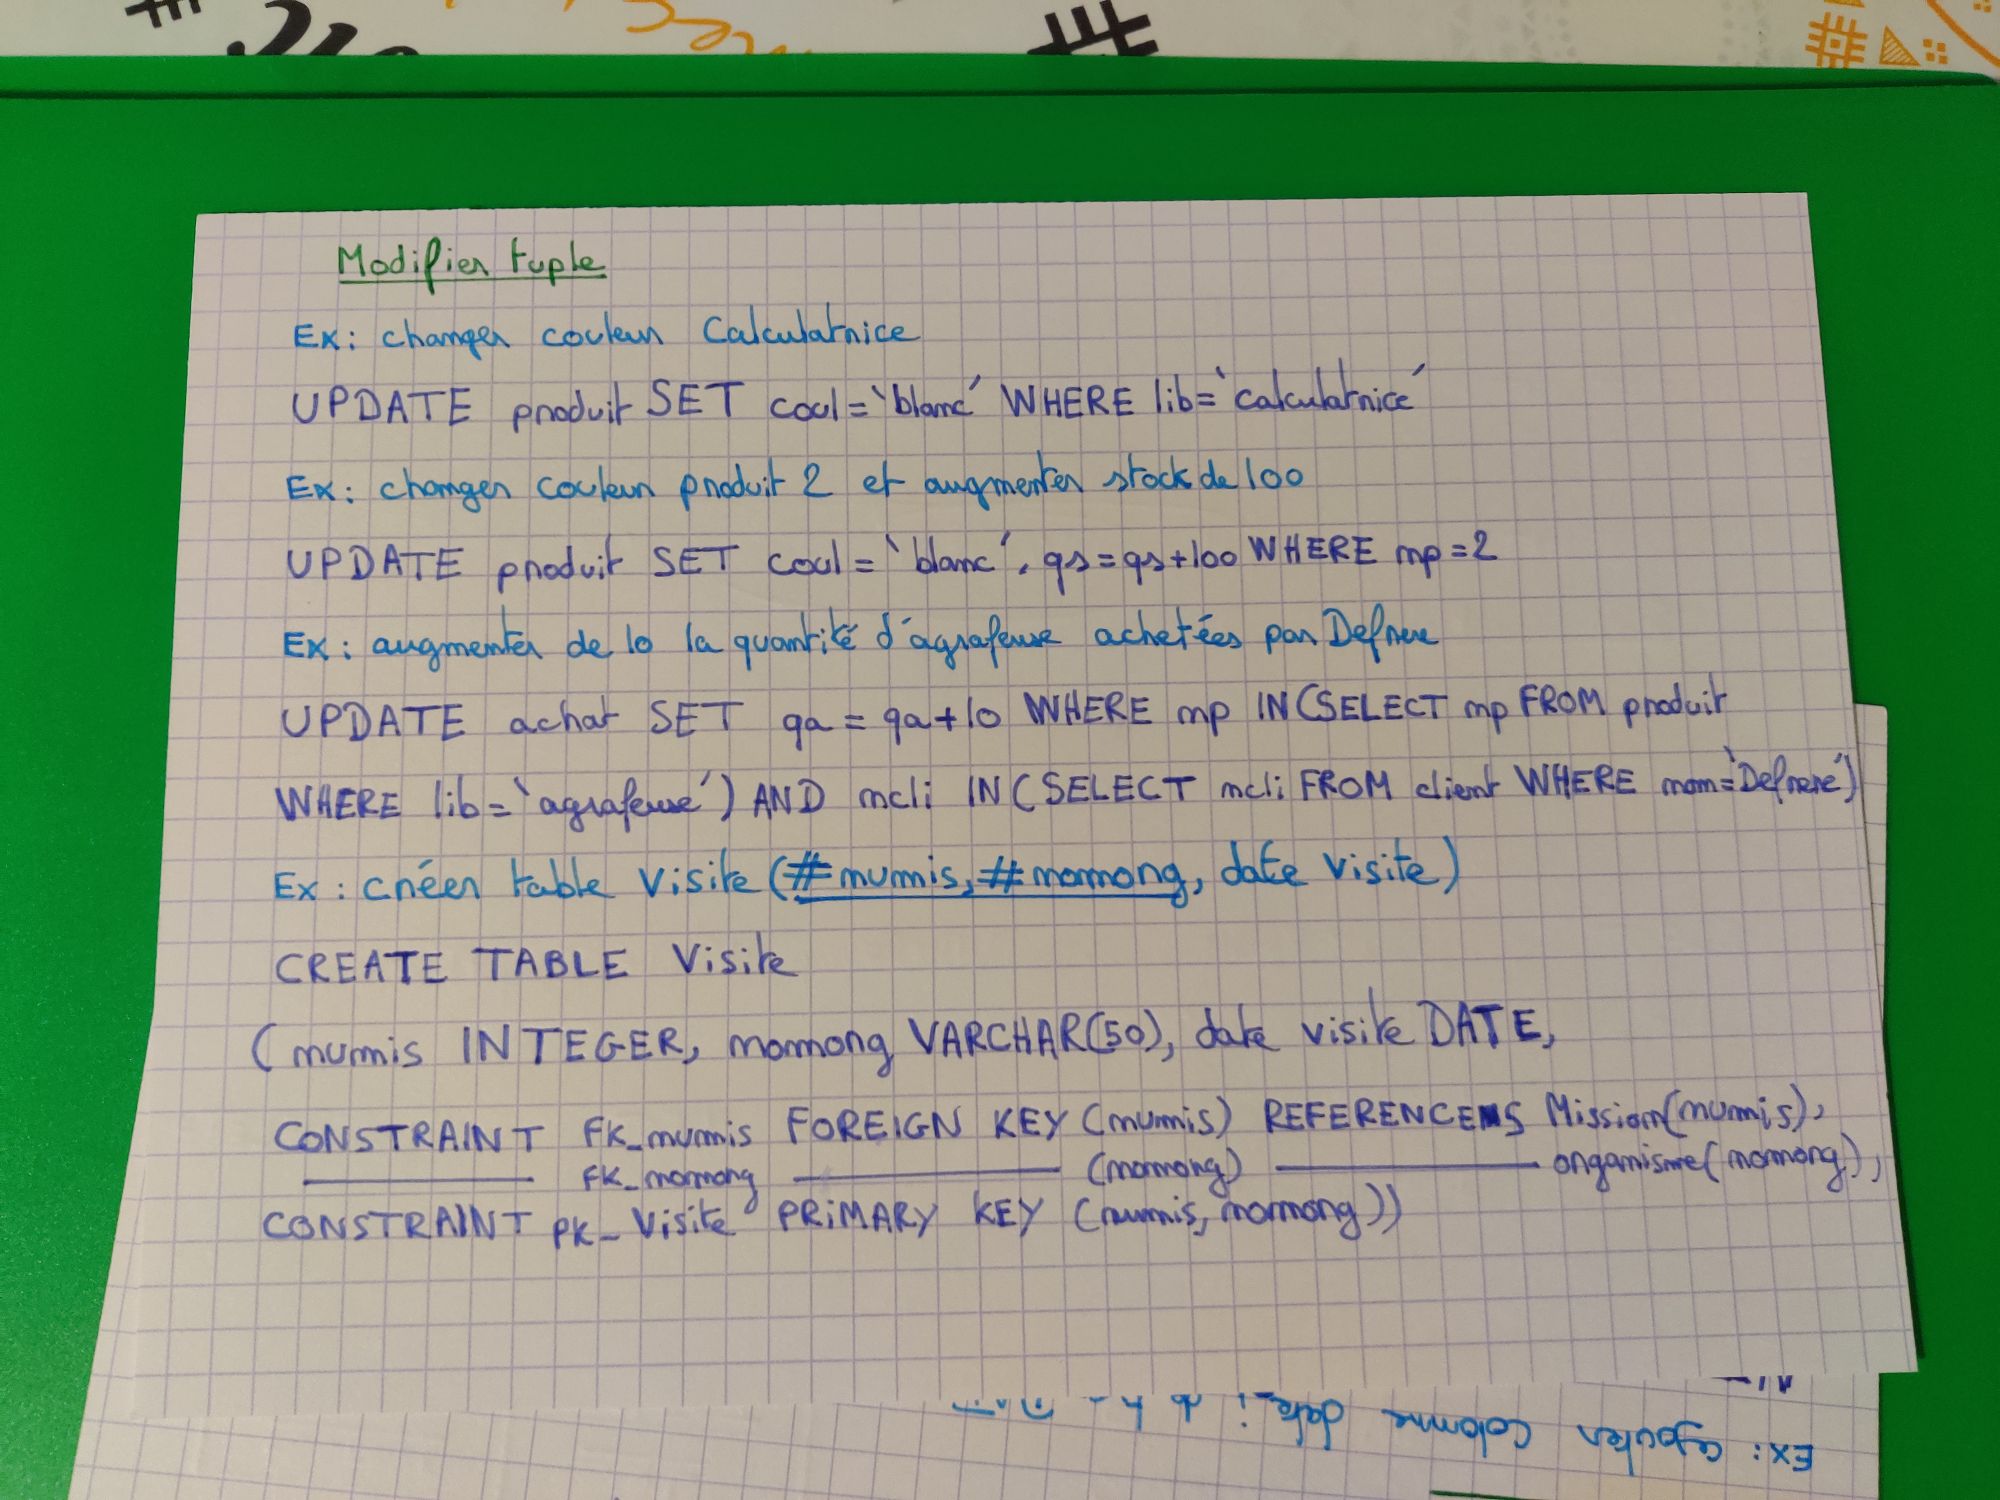 Modifier tuple
Ex: changer couleur Calculatrice
UPDATE produit SET coul='blanc' WHERE lib='calculatrice'
Ex: changer couleur produit 2 et augmenter stock de 100
UPDATE produit SET coul='blanc', qs=qs+100 WHERE np=2
Ex: augmenter de 10 la quantité d'agrafeuse achetées par Defrere
UPDATE achat SET qa=qa+10 WHERE np IN(SELECT np FROM produit
WHERE lib='agrafeuse') AND ncli IN(SELECT ncli FROM client WHERE nom='Defrere')
Ex: créer table Visite (#numis, #nomong, date visite)
CREATE TABLE Visite
(numis INTEGER, nomong VARCHAR(50), date visite DATE,
CONSTRAINT FK_numis FOREIGN KEY (numis) REFERENCES Mission(numis),
FK_nomong (nomong) organisme(nomong),
CONSTRAINT PK_Visite PRIMARY KEY (numis, nomong))
Ex: ajouter colonne date